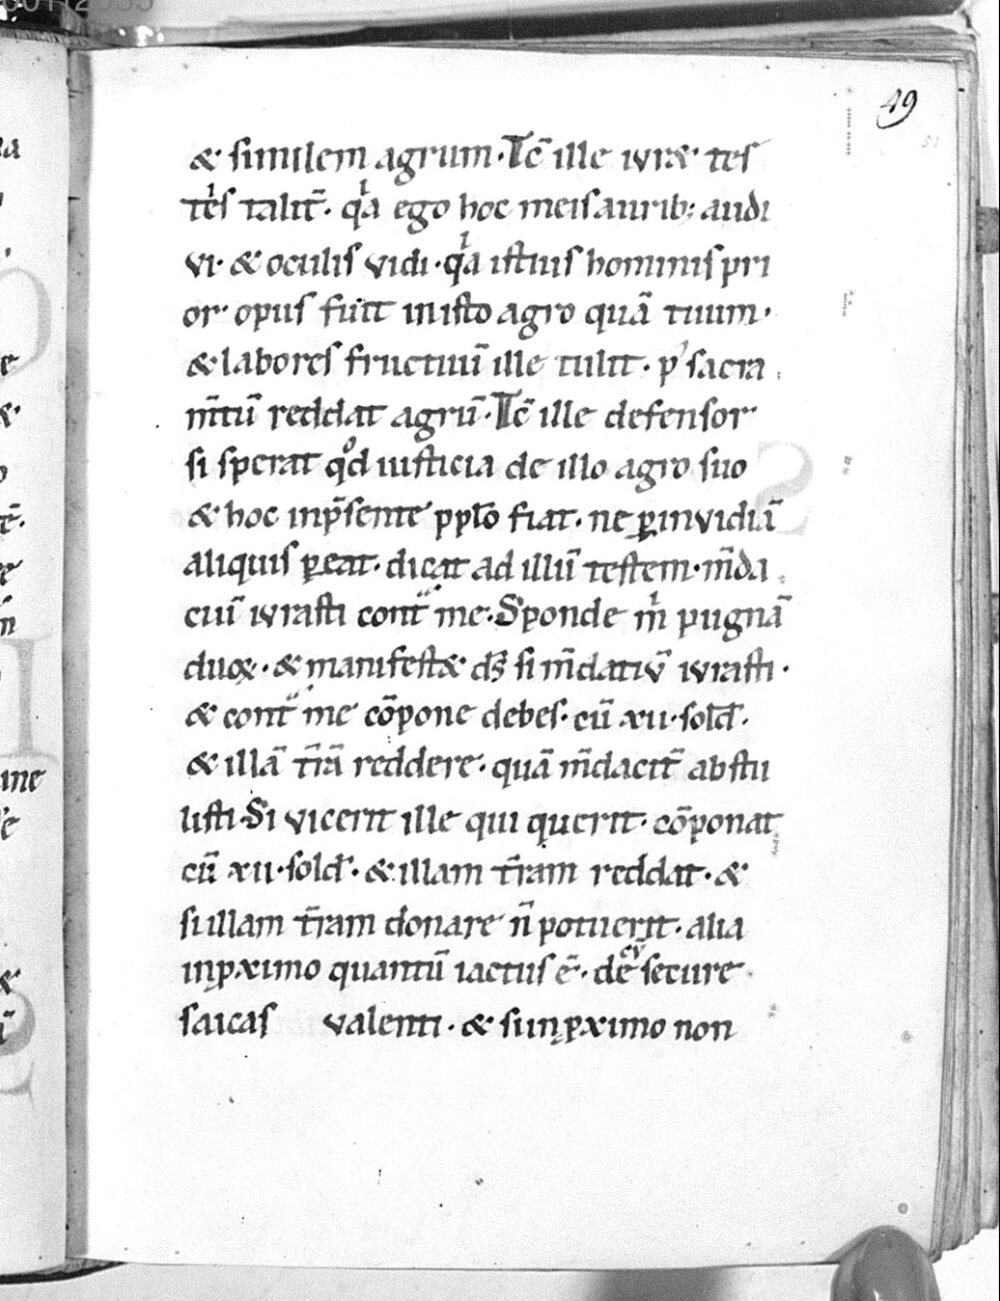 49
& similem agrum · Tc̄ ille iur& · tes
tes talit̄ · qͥa ego hoc meis aurib; audi
vi · & oculis vidi · qͥa istius hominis pri
or · opus fuit in isto agro quā tuum ·
& labores fructuū ille tulit · p' sacra
m̄tū reddat agrū · Tc̄ ille defensor
si sperat qͦd iusticia de illo agro suo
& hoc inp̄sente pplo fiat · ne ꝑ invidiā
aliquis ꝑeat · dicat ad illū testem · m̄da
ciū ivrasti cont̄ me · Sponde mͥ pugnā
duoꝝ · & manifest& ds̄ si m̄datiū ivrasti ·
& cont̄ me cōpone debes · cū xii · sold̄ ·
& illā t̄rā reddere · quā m̄dacit̄ abstu
listi · Si vicerit ille qui querit · cōponat
cū xii · sold̄ · & illam t̄ram reddat · &
si illam t̄ram donare n̄ potuerit · alia
inꝓximo quantū iactus ē · de secure
saicas valenti · & si inꝓximo non